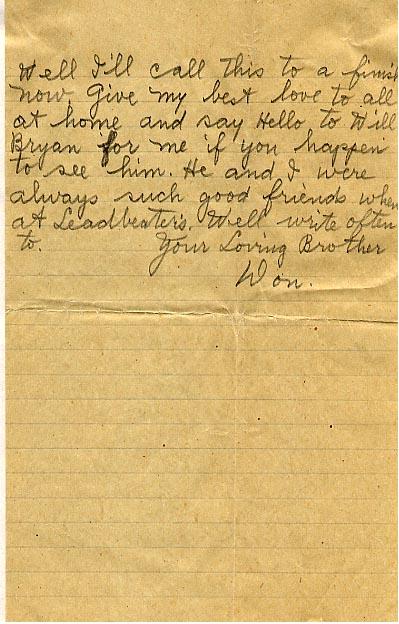 Well I'll call this to a finish
now. Give my best love to all
at home and say Hello to Will
Bryan for me if you happen
to see him. He and I were
always such good friends when
at Leadbeater's. Well write often
to. Your Loving Brother
Won.